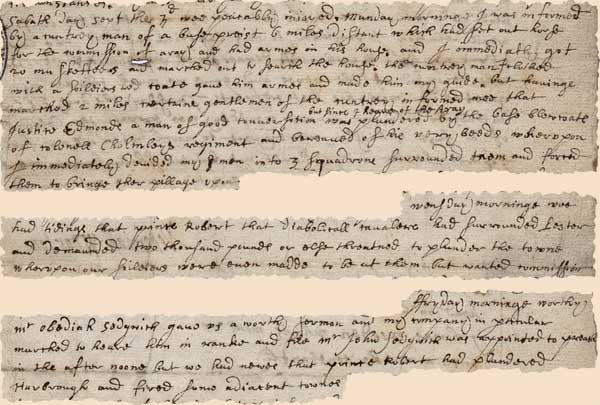 Sabath day sept the 3rd wee peacably injoied, Munday morninge I was informed
by a cuntry man of a base preist 6 miles distant which had set out horse
for the commission of aray and had armes in his house, and I immediatly got
to musketteers and martched out to search the house, the cuntry man I cloked
with a soildiers red coate gave him armes and made him my guide, but havinge
martched 2 miles certaine gentlemen of the cuntrey informed mee that
Justice Edmonds a man of good conversation was plundered by the base blewcoats
but since I
of colonell Cholmleys regiment and bereaved of his verry beeds wherupon
I immediately devided my men into 3 squadrons surrounded them and forced
them to bringe ther pillage upon
wensday morninge wee
had tidings that prince Robert that diabolicall cavaleere had surrounded Lester
and demaunded two thousand pounds or else threatned to plunder the towne
wherupon our soildiers were even madde to be at them but wanted commission
ffryday morninge worthy
mr obediah Sedgwick gave us a worthy sermon and my company in perticular
martched to heare him in ranke and file mr John Sedgwick was appointed to preach
in the after noone but we had newes that prince Robert had plundered
Harbrough and fired some adjacent townes